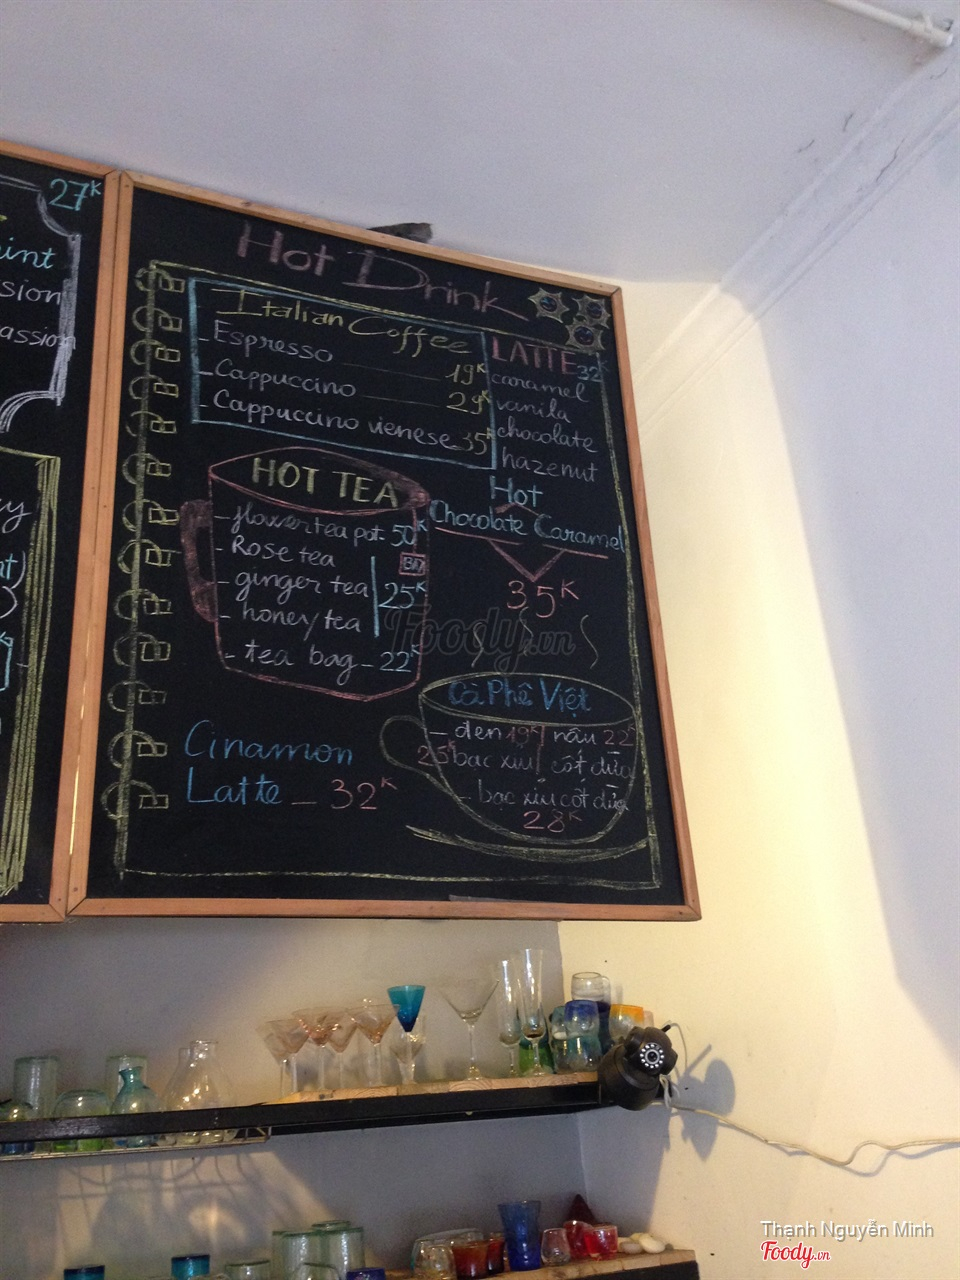 27K
int
sion
assion
Hot Drink
Italian Coffee
- Espresso 19K
- Cappuccino 29K
- Cappuccino vienese 35K
LATTE 32K
caramel
vanila
chocolate
hazenut
Hot
Chocolate Caramel
35K
HOT TEA
- flower tea pot - 50K
- Rose tea
- ginger tea 25K
- honey tea
- tea bag - 22K
Cà Phê Việt
- đen 19K nâu 22K
25K bac xiu cốt dừa
- bạc xỉu cốt dừa
28K
Cinamon
Latte - 32K
Foody.vn
Thạnh Nguyễn Minh
Foody.vn